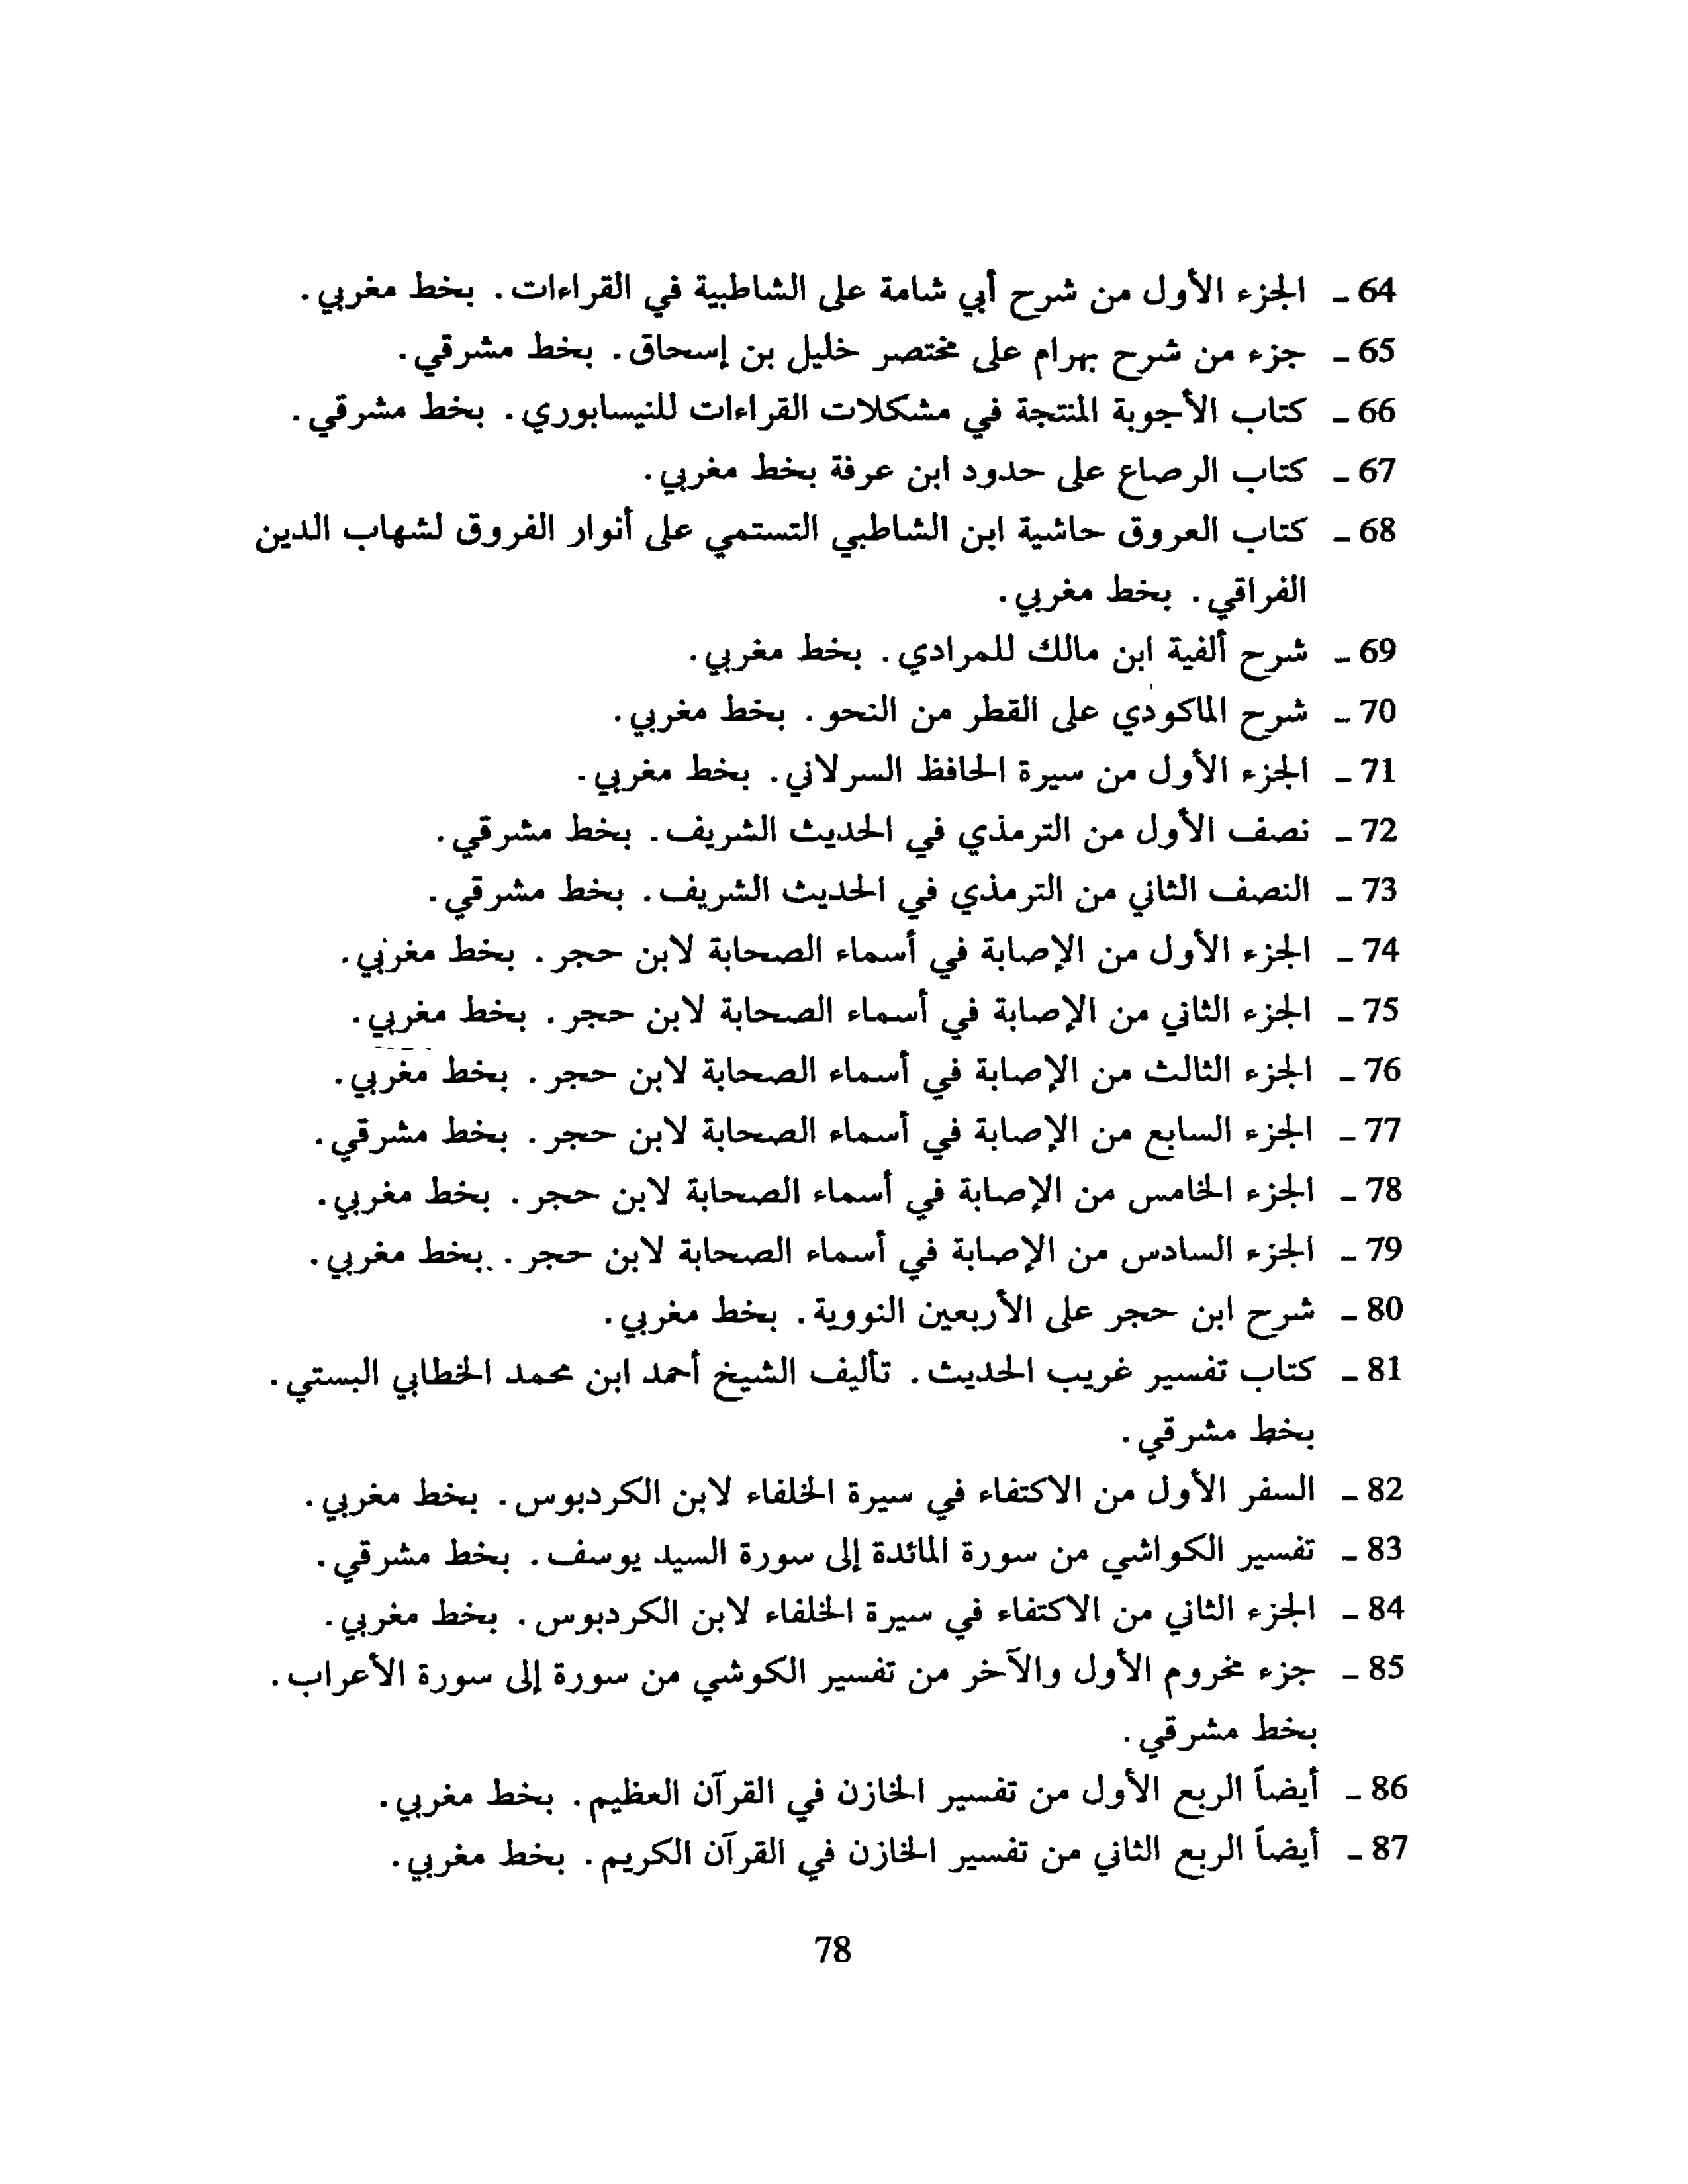 64 ـ الجزء الأول من شرح أبي شامة على الشاطبية في القراءات. بخط مغربي.
65 ـ جزء من شرح بهرام على مختصر خليل بن إسحاق. بخط مشرقي.
66 ـ كتاب الأجوبة المنتجة في مشكلات القراءات للنيسابوري. بخط مشرقي.
67 ـ كتاب الرصاع على حدود ابن عرفة بخط مغربي.
68 ـ كتاب العروق حاشية ابن الشاطبي التستمي على أنوار الفروق لشهاب الدين
الفراقي. بخط مغربي.
69 ـ شرح ألفية ابن مالك للمرادي. بخط مغربي.
70 ـ شرح الماكودي على القطر من النحو. بخط مغربي.
71 ـ الجزء الأول من سيرة الحافظ السرلاني. بخط مغربي.
72 ـ نصف الأول من الترمذي في الحديث الشريف. بخط مشرقي.
73 ـ النصف الثاني من الترمذي في الحديث الشريف. بخط مشرقي.
74 ـ الجزء الأول من الإصابة في أسماء الصحابة لابن حجر. بخط مغربي.
75 ـ الجزء الثاني من الإصابة في أسماء الصحابة لابن حجر. بخط مغربي.
76 ـ الجزء الثالث من الإصابة في أسماء الصحابة لابن حجر. بخط مغربي.
77 ـ الجزء السابع من الإصابة في أسماء الصحابة لابن حجر. بخط مشرقي.
78 ـ الجزء الخامس من الإصابة في أسماء الصحابة لابن حجر. بخط مغربي.
79 ـ الجزء السادس من الإصابة في أسماء الصحابة لابن حجر. بخط مغربي.
80 ـ شرح ابن حجر على الأربعين النووية. بخط مغربي.
81 ـ كتاب تفسير غريب الحديث. تأليف الشيخ أحمد ابن محمد الخطابي البستي.
بخط مشرقي.
82 ـ السفر الأول من الاكتفاء في سيرة الخلفاء لابن الكردبوس. بخط مغربي.
83 ـ تفسير الكواشي من سورة المائدة إلى سورة السيد يوسف. بخط مشرقي.
84 ـ الجزء الثاني من الاكتفاء في سيرة الخلفاء لابن الكردبوس. بخط مغربي.
85 ـ جزء مخروم الأول والآخر من تفسير الكوشي من سورة إلى سورة الأعراب.
بخط مشرقي.
86 ـ أيضاً الربع الأول من تفسير الخازن في القرآن العظيم. بخط مغربي.
87 ـ أيضاً الربع الثاني من تفسير الخازن في القرآن الكريم. بخط مغربي.
78